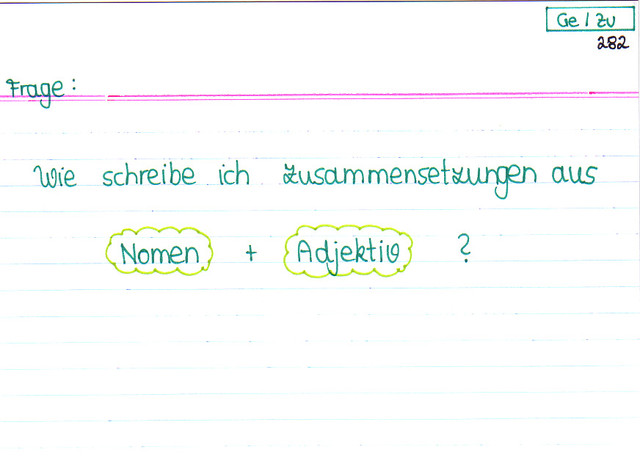 Ge / Zu
282
Frage:
Wie schreibe ich Zusammensetzungen aus
Nomen + Adjektiv ?